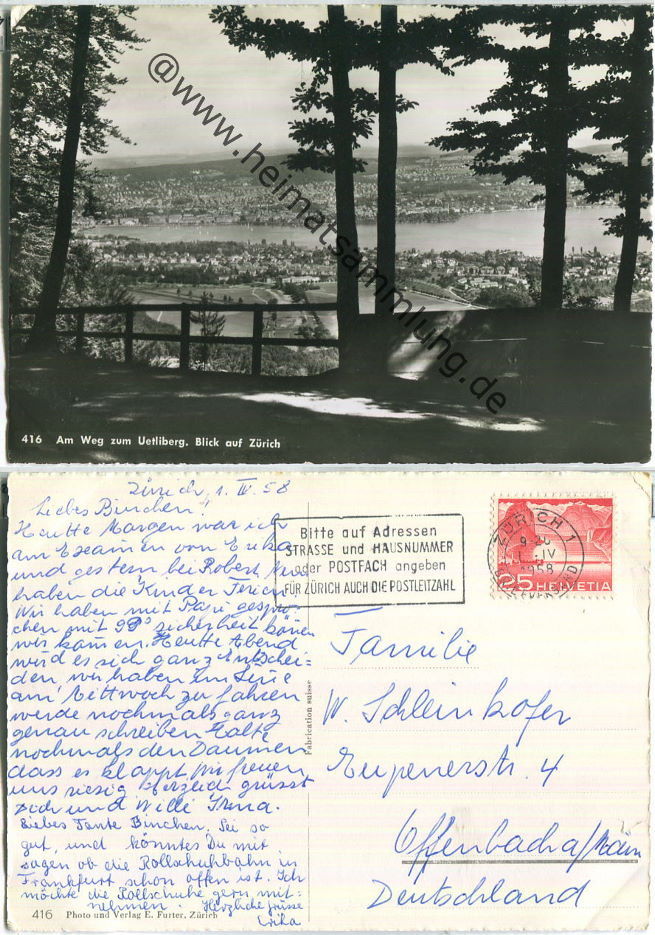 @www.heimatsammlung.de
416 Am Weg zum Uetliberg. Blick auf Zürich
Zürich, 1. IV. 58
Liebes Binchen!
Heutte Morgen war ich
am Examen von Erika
und gestern bei Robert,
haben die Kinder Ferien
Wir haben mit Papi gespro-
chen mit 99% sicherheit können
wir kommen. Heutte Abend
wird es sich ganz Entschei-
den, wir haben im Sinne
am Mittwoch zu fahren
werde nochmals ganz
genau schreiben Halte
nochmals den Daumen
dass es klappt Wir freuen
uns riesig Herzlich grüsst
Dich und Willi Irma.
Liebes Tante Binchen, Sei so
gut, und könntes Du mit
sagen ob die Rollschuhbahn in
Frankfurt schon offen ist. Ich
möchte die Rollschuhe gern mit-
nehmen. Herzliche grüsse
Erika
416 Photo und Verlag E. Furter, Zürich
Fabrication suisse
Bitte auf Adressen
STRASSE und HAUSNUMMER
oder POSTFACH angeben
FÜR ZÜRICH AUCH DIE POSTLEITZAHL
ZÜRICH 1
IV
1958
25 HELVETIA
Familie
W. Schleinkofer
Eupenerstr. 4
Offenbach a/Main
Deutschland